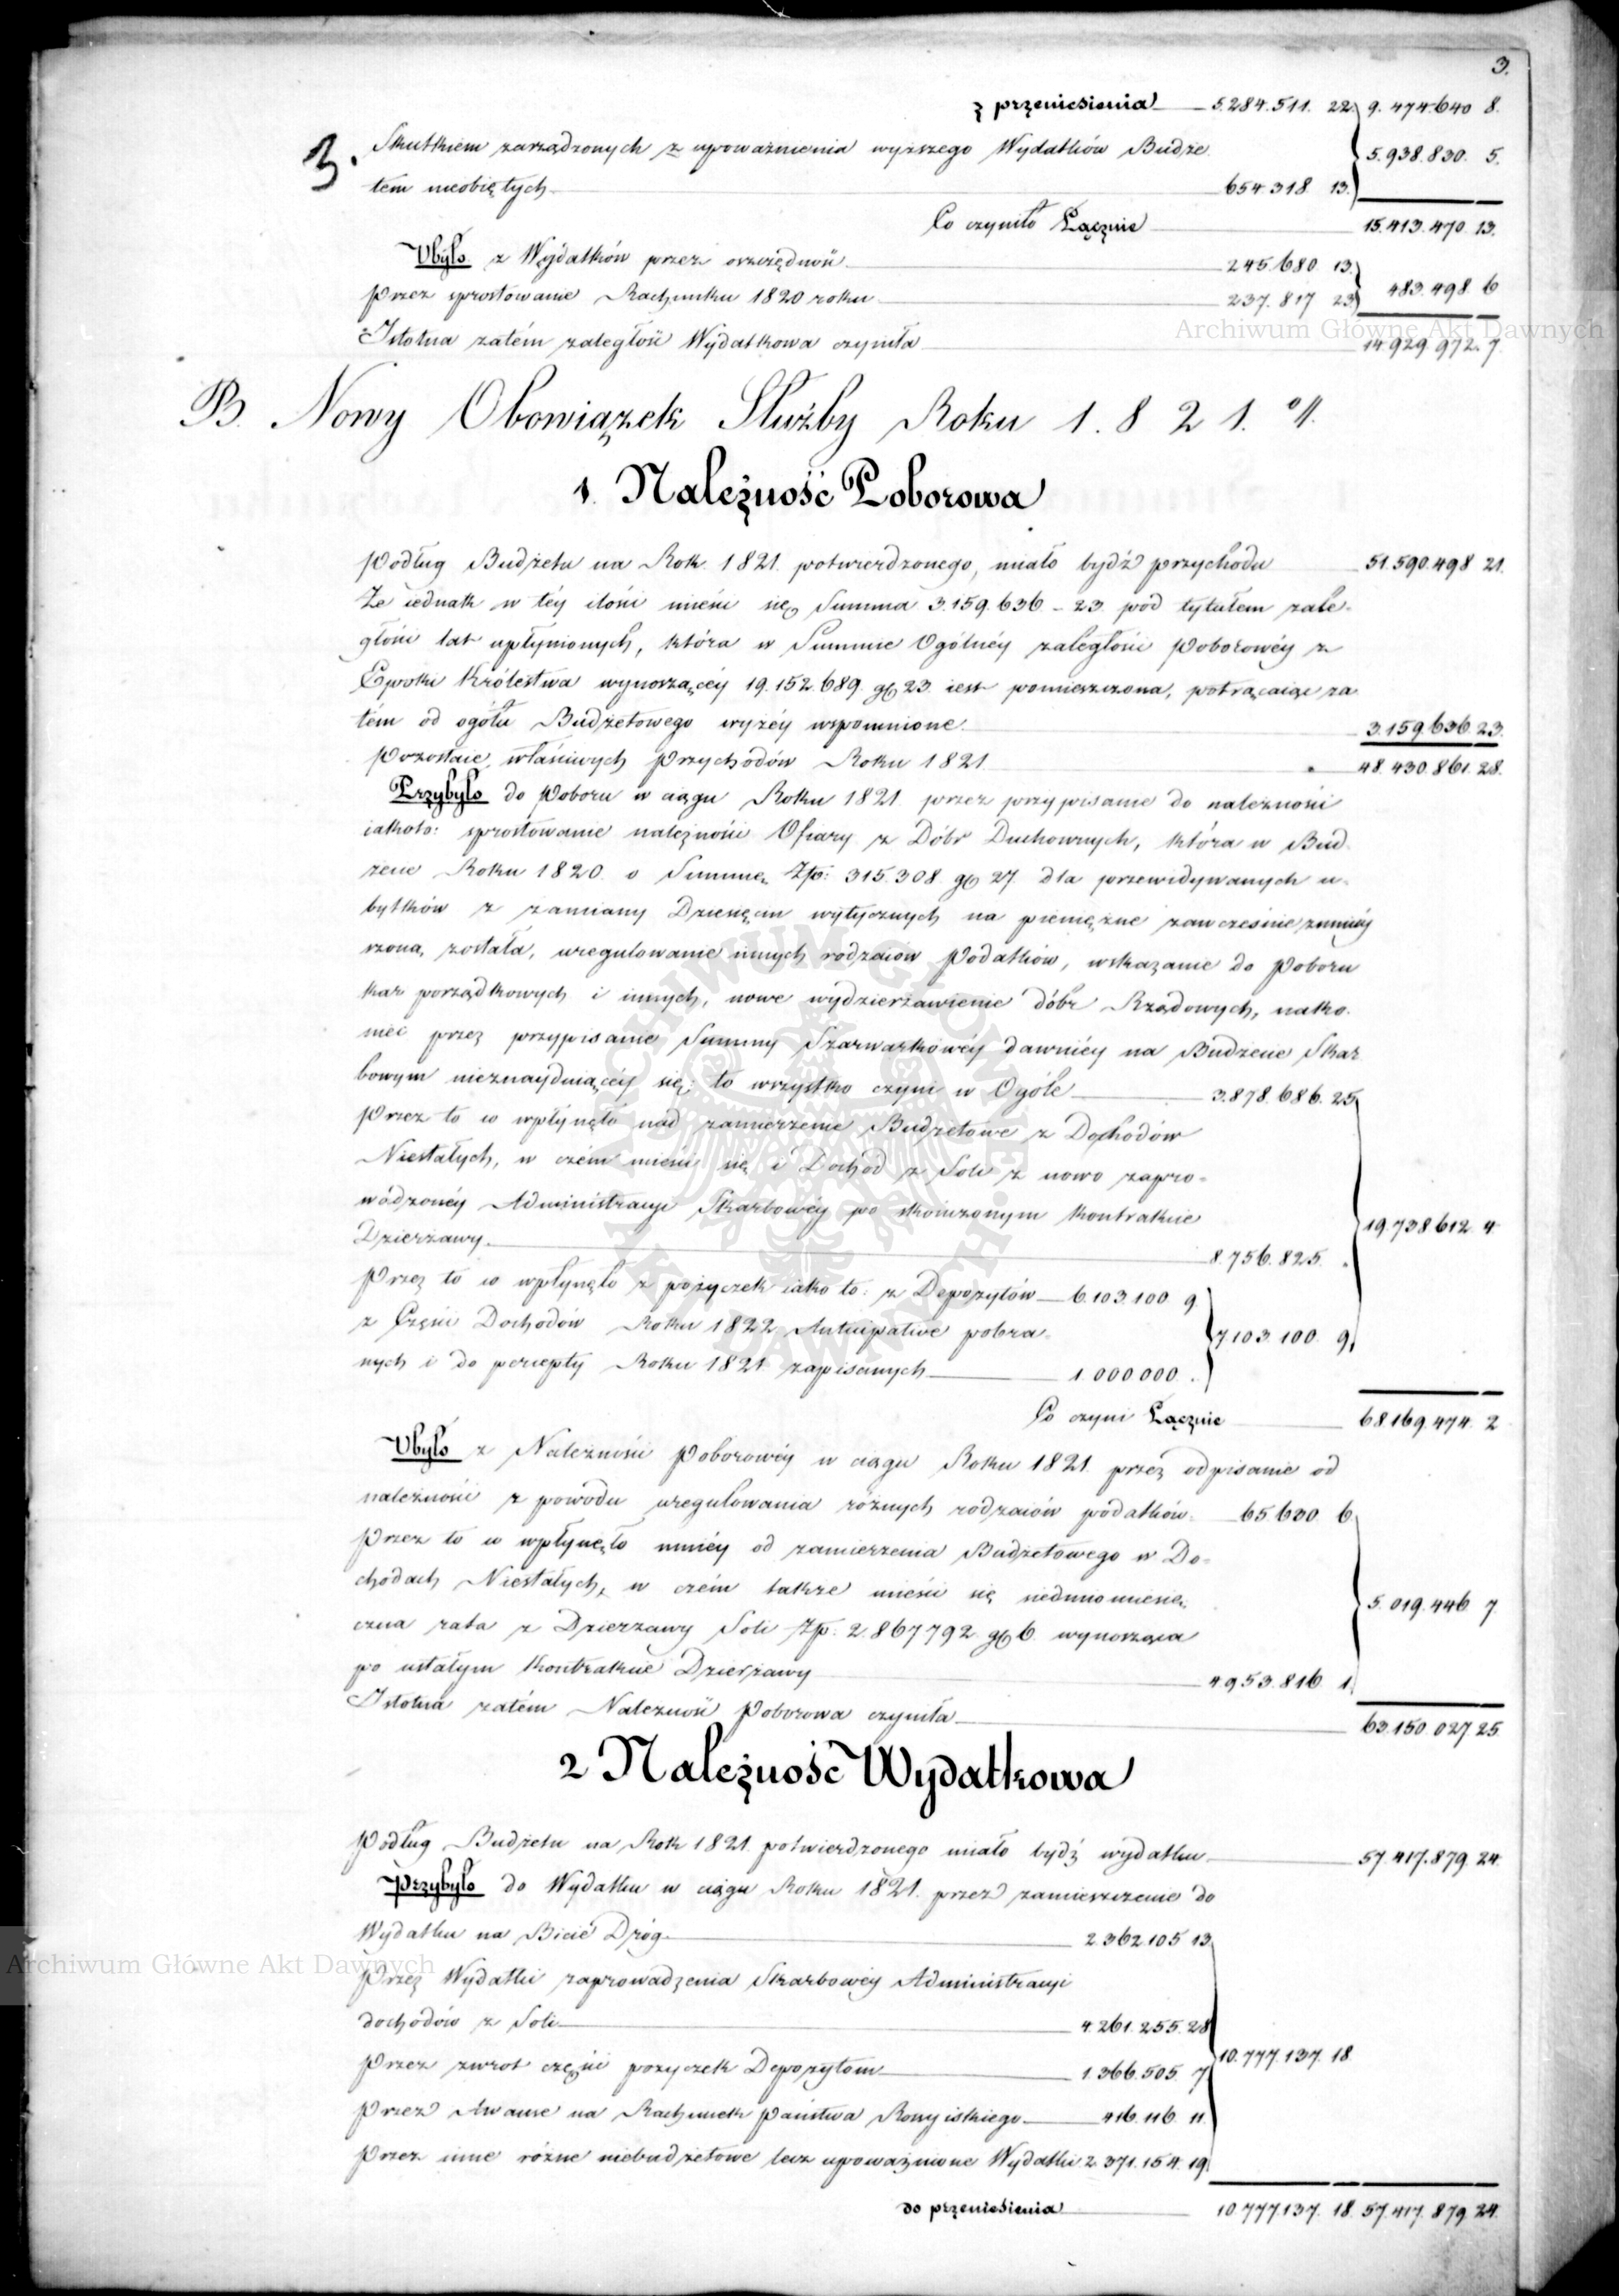 3.
z przeniesienia 5.284.511. 22. 9.474.640 8.
3. Skutkiem zarządzonych z upoważnienia wyższego Wydatków Budże
tem nieobiętych 654.318 13. 5.938.830. 5.
Co czyniło Łącznie 15.413.470 13.
Ubyło z Wydatków przez oszczędność 245.680 13.
Przez sprostowanie Rachunku 1820 roku 237.817 23 483.498 6
Istotna zatém zaległość Wydatkowa czyniła 14.929.972. 7.
Archiwum Główne Akt Dawnych
B. Nowy Obowiązek Służby Roku 1.8 2 1.
1. Należność Poborowa
Podług Budżetu na Rok 1821. potwierdzonego, miało bydź przychodu 51.590.498 21.
Że iednak w téy ilości mieści się Summa 3.159.636 - 23 pod tytułem zale-
głości lat upłynionych, która w Summie Ogólnéy zaległości Poborowéy z
Epoki Królestwa wynoszącéy 19.152.689. gr 23. iest pomieszczona, potrącaiąc za
tém od ogółu Budżetowego wyżéy wspomnione 3.159.636. 23.
Pozostaie właściwych Przychodów Roku 1821 48.430.861. 28.
Przybyło do Poboru w ciągu Roku 1821. przez przypisanie do należności
iakoto: sprostowanie należności Ofiary z Dóbr Duchownych, która w Bud-
żecie Roku 1820. o Summę Złp: 315.308. gr 27. dla przewidywanych u-
bytków z zamiany Dziesięcin wytycznych na pieniężne zawcześnie zmniéy
szona, została, uregulowanie innych rodzaiów Podatków, wskazanie do Poboru
kar porządkowych i innych, nowe wydzierżawienie dóbr Rządowych, nako-
niec przez przypisanie Summy Szarwarkowéy dawniéy na Budżecie Skar
bowym nieznayduiącéy się; to wszystko czyni w Ogóle 3.878.686. 25
Przez to co wpłynęło nad zamierzenie Budżetowe z Dochodów
Niestałych, w czém mieści się i Dochód z Soli z nowo zapro-
wadzonéy Administracyi Skarbowéy po skończonym Kontrakcie
Dzierżawy 8.756.825. . 19.738.612. 4.
Przez to co wpłynęło z pożyczek iako to: z Depozytów 6.103.100 9.
z Części Dochodów Roku 1822 Anticipative pobra-
nych i do percepty Roku 1821 zapisanych 1.000.000. . 7.103.100. 9.
Co czyni Łącznie 68.169.474. 2
Ubyło z Należności Poborowéy w ciągu Roku 1821. przez odpisanie od
należności z powodu uregulowania różnych rodzaiów podatków 65.630. 6.
Przez to co wpłynęło mniéy od zamierzenia Budżetowego w Do-
chodach Niestałych, w czém także mieści się siedmiomiesię-
czna rata z Dzierżawy Soli Złp. 2.867792. gr 6. wynosząca
po ustałym Kontrakcie Dzierżawy 4.953.816. 1. 5.019.446. 7.
Istotna zatém Należność Poborowa czyniła 63.150.027 25
2 Należność Wydatkowa
Podług Budżetu na Rok 1821. potwierdzonego miało bydź wydatku 57.417.879. 24.
Przybyło do Wydatku w ciągu Roku 1821. przez zamieszczenie do
Wydatku na Bicie Dróg 2.362.105 13.
Archiwum Główne Akt Dawnych
Przez Wydatki zaprowadzenia Skarbowéy Administracyi
dochodów z Soli 4.261.255. 28
Przez zwrot części pożyczek Depozytom 1.366.505. 7 10.777.137. 18.
Przez Awanse na Rachunek Państwa Rossyiskiego 416.116. 11.
Przez inne różne niebudżetowe lecz upoważnione Wydatki 2.371.154. 19.
do przeniesienia 10.777.137. 18. 57.417.879. 24.